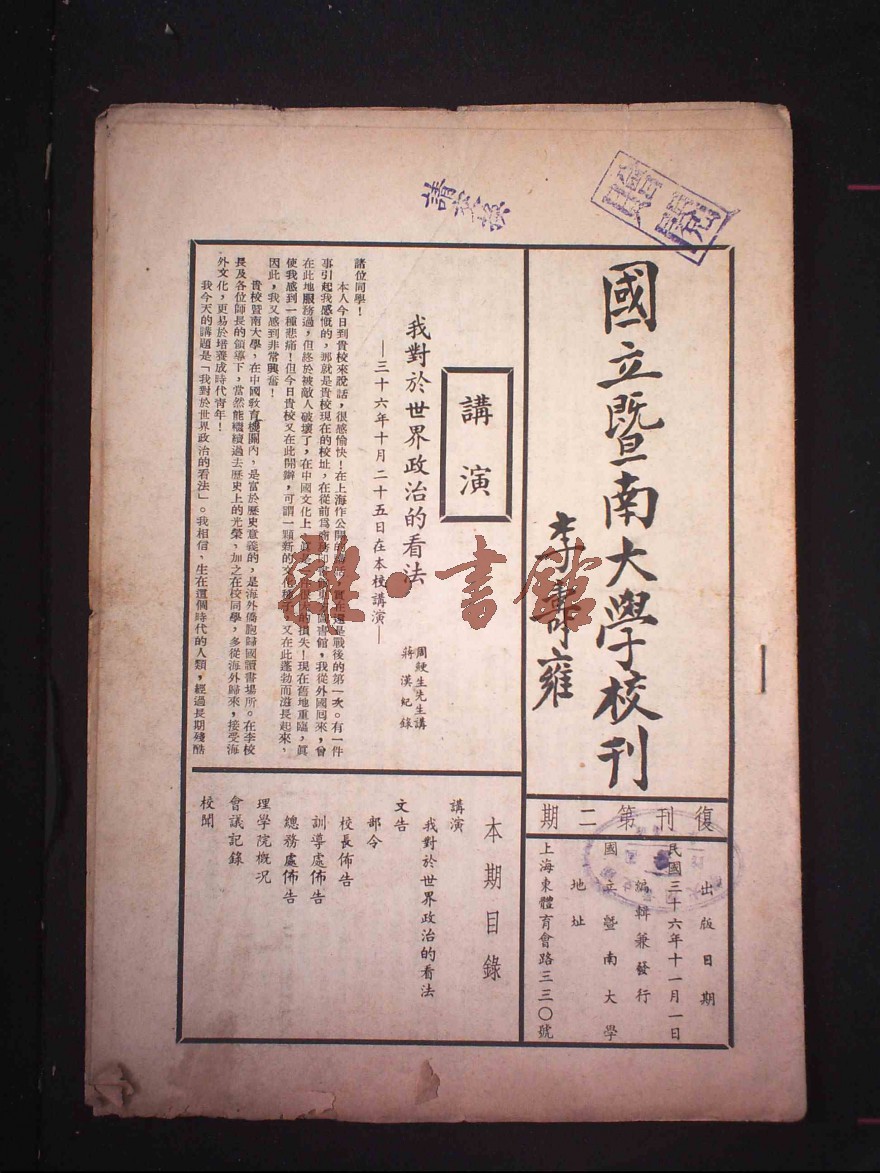 國立暨南大學校刊
李壽雍
復刊第二期
出版日期
民國三十六年十一月一日
編輯兼發行
國立暨南大學
地址
上海東體育會路三三〇號
講演
我對於世界政治的看法
—三十六年十月二十五日在本校講演—
周鯁生先生講
蔣漢紀錄
諸位同學！
本人今日到貴校來說話，很感愉快！在上海作公開的講演，實在還是戰後的第一次。有一件
事引起我感慨的，那就是貴校現在的校址，在從前爲商務印書館東方圖書館，我從外國囘來，曾
在此地服務過，但終於被敵人破壞了，在中國文化上，眞是一件很大的損失！現在舊地重臨，眞
使我感到一種悲痛！但今日貴校又在此開辦，可謂一顆新的文化種子，又在此蓬勃而滋長起來，
因此，我又感到非常興奮！
貴校暨南大學，在中國敎育機關內，是富於歷史意義的，是海外僑胞歸國讀書場所。在李校
長及各位師長的領導下，當然能繼續過去歷史上的光榮，加之在校同學，多從海外歸來，接受海
外文化，更易於培養成時代靑年！
我今天的講題是「我對於世界政治的看法」。我相信，生在這個時代的人類，經過長期殘酷
本期目錄
講演
我對於世界政治的看法
文告
部令
校長佈告
訓導處佈告
總務處佈告
理學院槪況
會議記錄
校聞
請交換